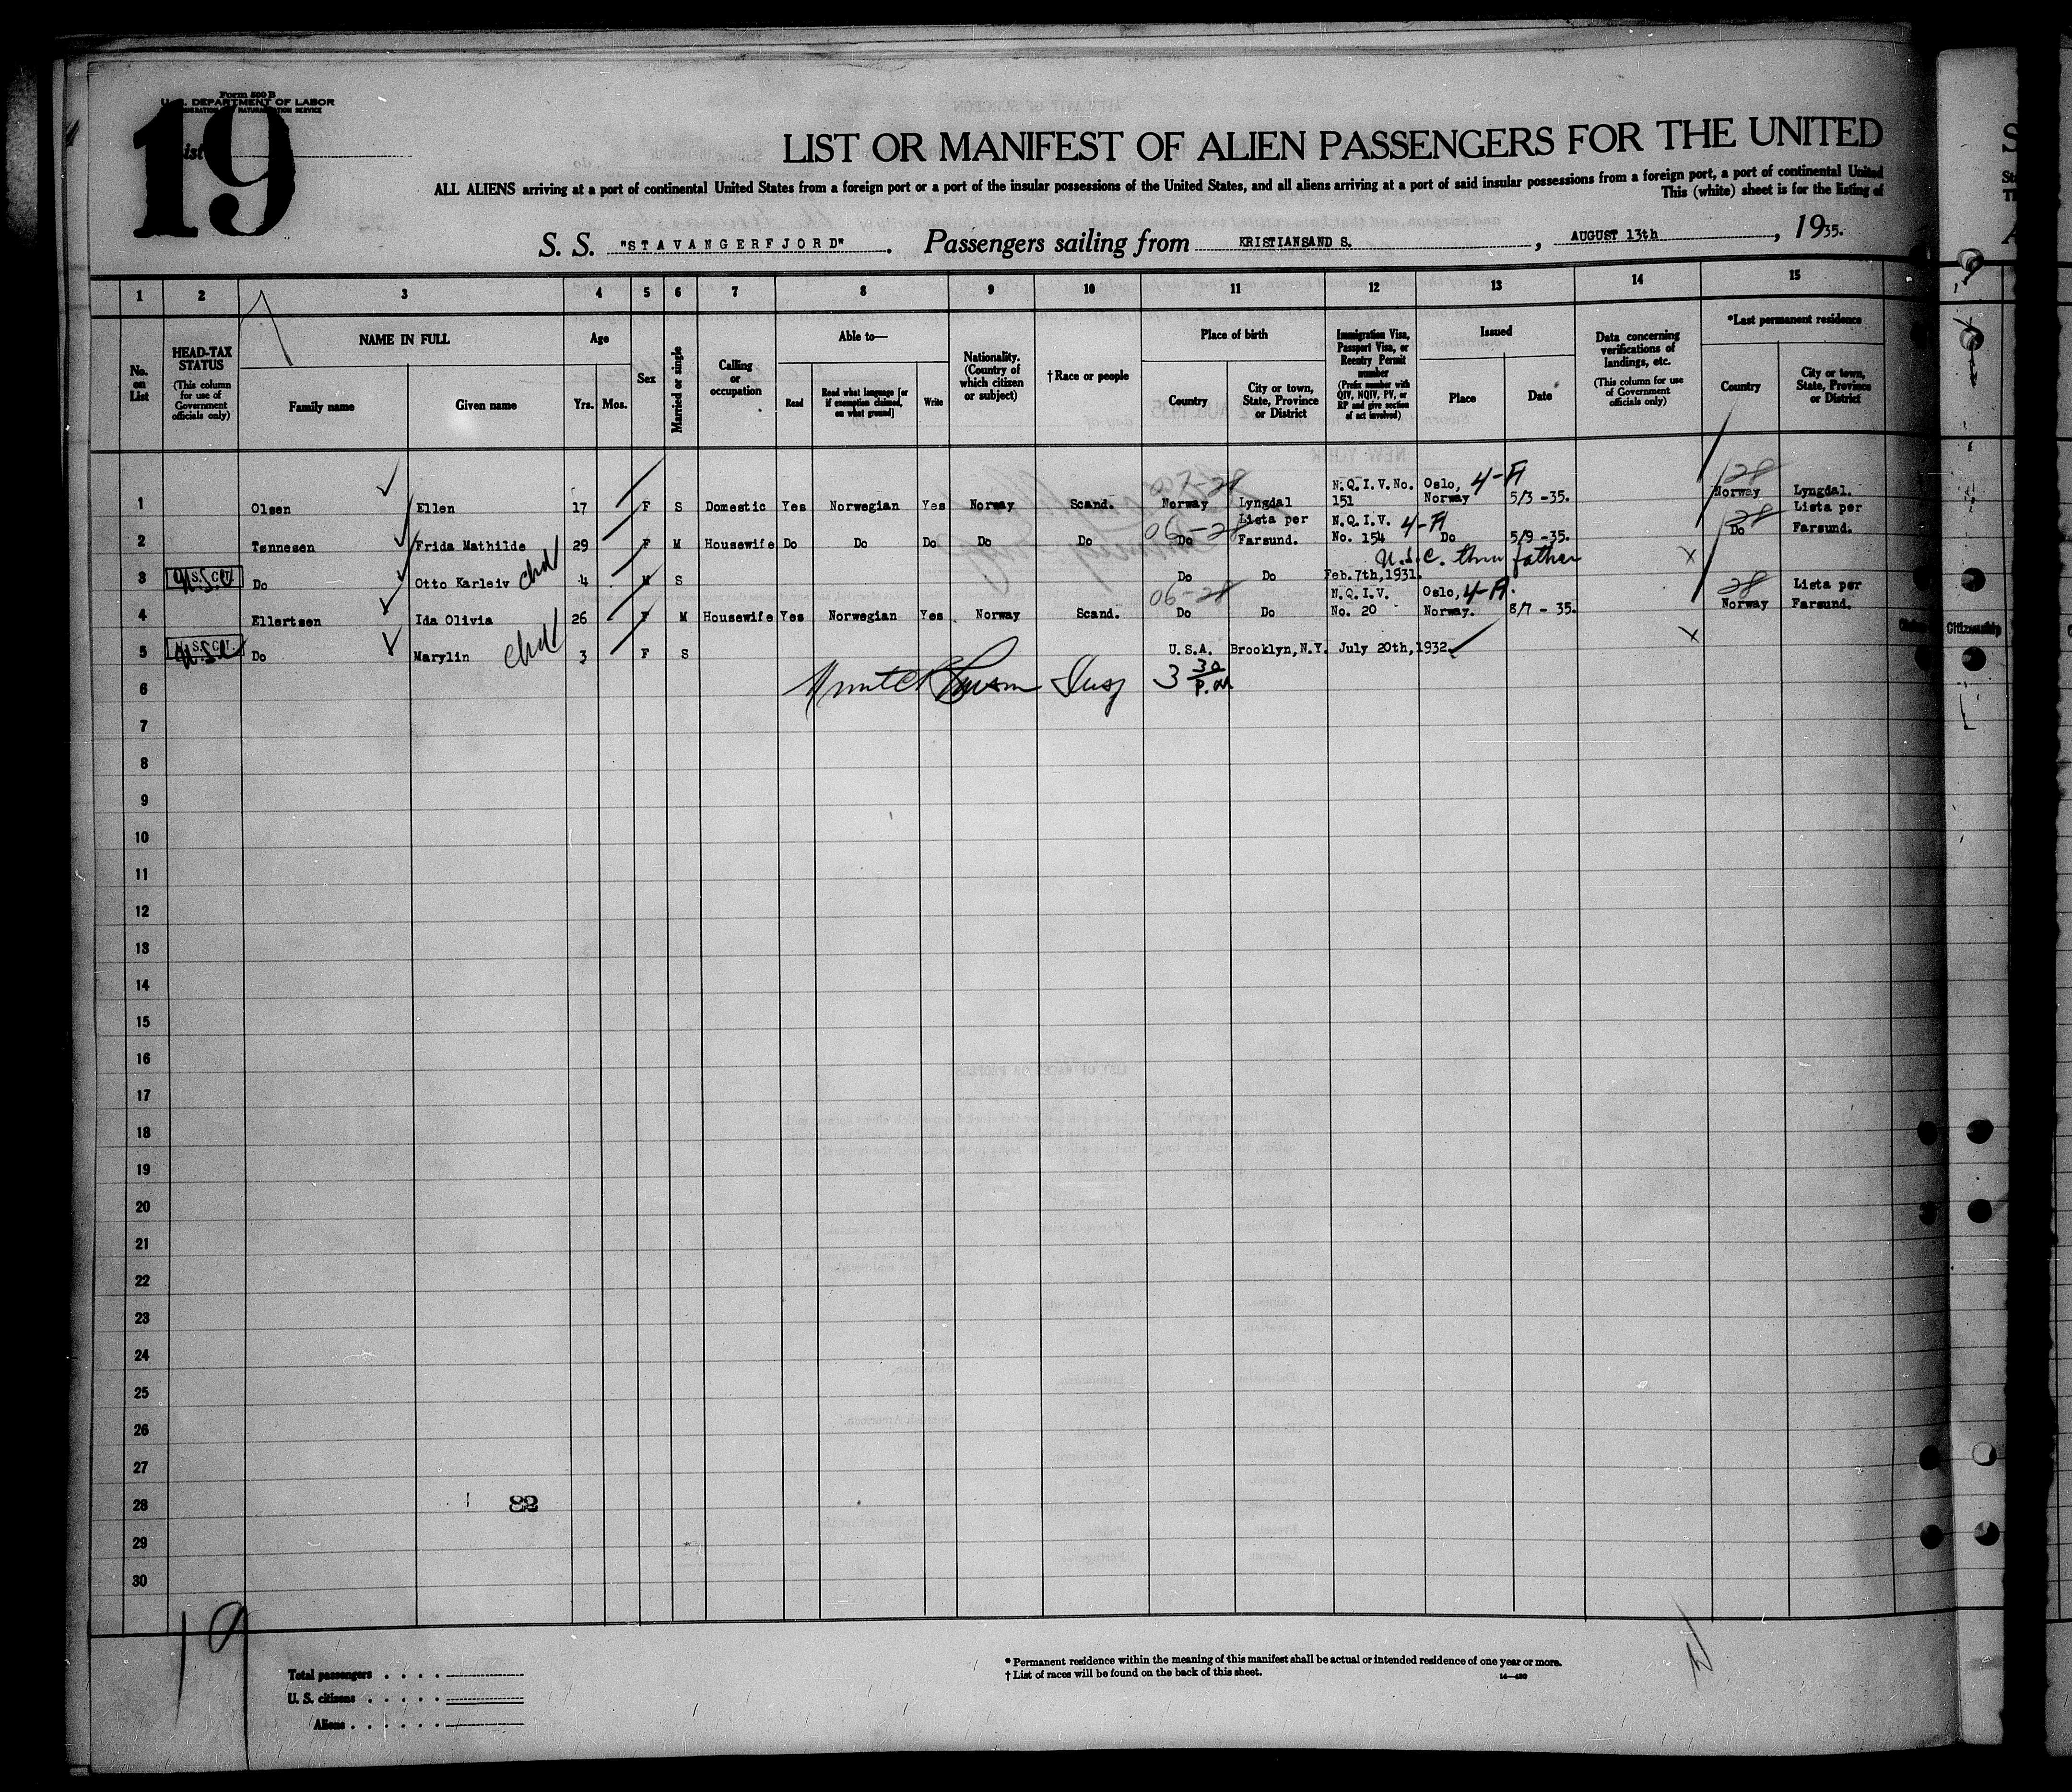 Form 500 B
U. S. DEPARTMENT OF LABOR
IMMIGRATION AND NATURALIZATION SERVICE
19
List
LIST OR MANIFEST OF ALIEN PASSENGERS FOR THE UNITED
ALL ALIENS arriving at a port of continental United States from a foreign port or a port of the insular possessions of the United States, and all aliens arriving at a port of said insular possessions from a foreign port, a port of continental United
This (white) sheet is for the listing of
S. S. "STAVANGERFJORD". Passengers sailing from KRISTIANSAND S., AUGUST 13th, 1935.
1 2 3 4 5 6 7 8 9 10 11 12 13 14 15
No. on List
HEAD-TAX STATUS
(This column for use of Government officials only)
NAME IN FULL
Family name
Given name
Age
Yrs. Mos.
Sex
Married or single
Calling or occupation
Able to—
Read
Read what language [or if exemption claimed, on what ground]
Write
Nationality. (Country of which citizen or subject)
†Race or people
Place of birth
Country
City or town, State, Province or District
Immigration Visa, Passport Visa, or Reentry Permit number
(Prefix number with QIV, NQIV, PV, or RP and give section of act involved)
Issued
Place
Date
Data concerning verifications of landings, etc.
(This column for use of Government officials only)
*Last permanent residence
Country
City or town, State, Province or District
1 Olsen Ellen 17 F S Domestic Yes Norwegian Yes Norway Scand. Norway Lyngdal N.Q.I.V.No. 151 Oslo, Norway 4-A 5/3 -35. 28 Norway Lyngdal.
2 Tønnesen Frida Mathilde 29 F M Housewife Do Do Do Do Do 06-28 Do Lista per Farsund. N.Q.I.V. No. 154 4-A Do 5/9 -35. 28 Do Lista per Farsund.
3 U.S.C. Do Otto Karleiv 4 M S Do Do Feb.7th,1931. U.S.C. thru father x
4 Ellertsen Ida Olivia 26 F M Housewife Yes Norwegian Yes Norway Scand. 06-28 Do Do N.Q.I.V. No. 20 Oslo, Norway. 4-A. 8/7 - 35. 28 Norway Lista per Farsund.
5 Do Marylin 3 F S U.S.A. Brooklyn,N.Y. July 20th,1932 x
Citizenship
6 3 30 P.M
7
8
9
10
11
12
13
14
15
16
17
18
19
20
21
22
23
24
25
26
27
28 82
29
30
19
Total passengers
U. S. citizens
Aliens
* Permanent residence within the meaning of this manifest shall be actual or intended residence of one year or more.
† List of races will be found on the back of this sheet.